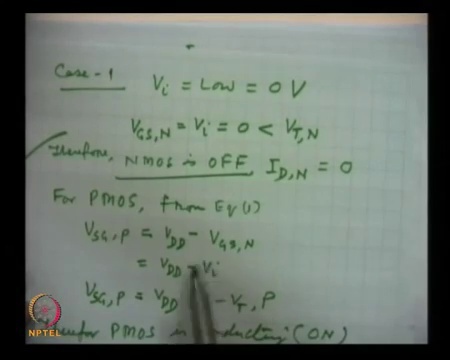 Case - 1 Vi = Low = 0 V
VGS,N = Vi = 0 < VT,N
Therefore, NMOS is OFF ID,N = 0
For PMOS, from Eq(1)
VSG,P = VDD - VGS,N
= VDD - Vi
VSG,P = VDD - VT,P
PMOS is conducting (ON)
NPTEL